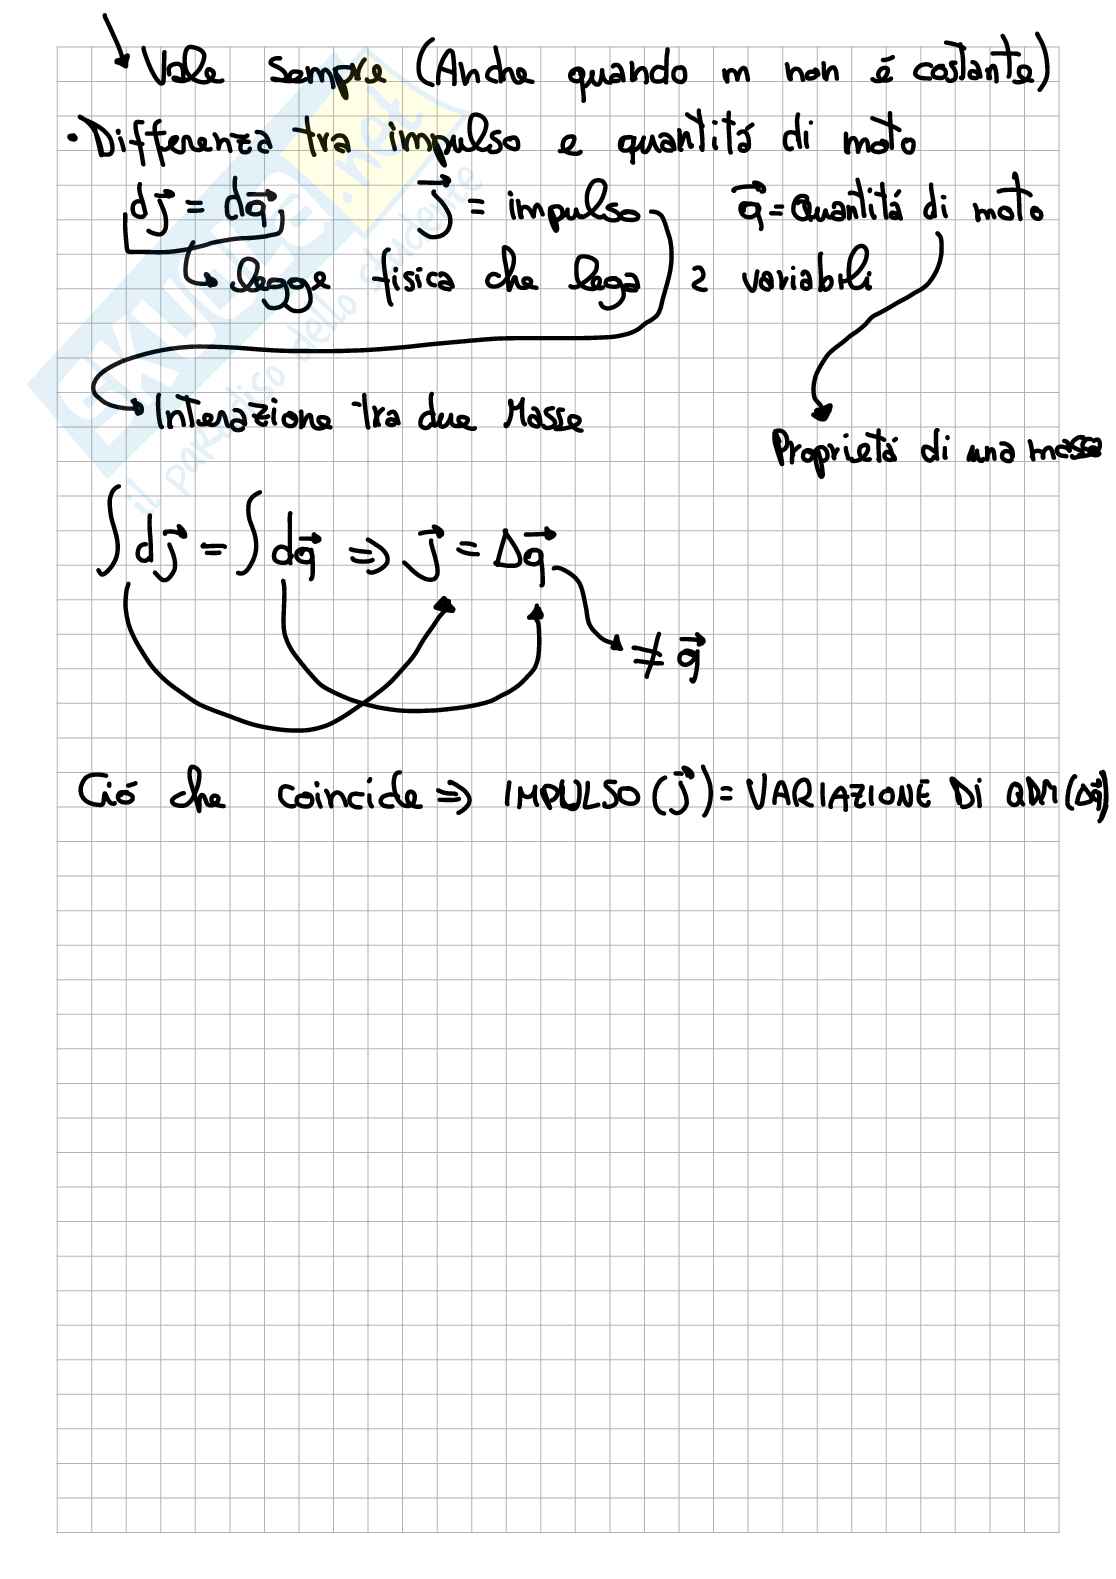 Vale sempre (Anche quando m non é costante)
• Differenza tra impulso e quantitá di moto
dj⃗ = dq⃗   j⃗ = impulso   q⃗ = Quantitá di moto
↳ legge fisica che lega 2 variabili
Interazione tra due Masse
Proprietá di una massa
∫dj⃗ = ∫dq⃗ ⇒ j⃗ = Δq⃗
≠ q⃗
Ció che coincide ⇒ IMPULSO (j⃗) = VARIAZIONE Di QDM (Δq⃗)
SKUOLA.net
il paradiso dello studente